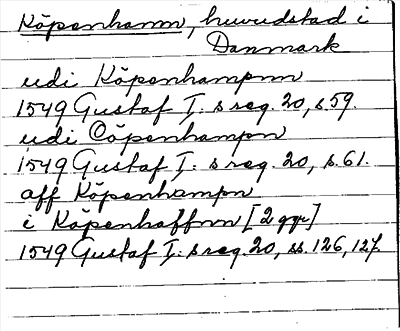 Köpenhamn, huvudstad i
Danmark
udi Köpenhampnn
1549 Gustaf I:s reg. 20, s. 59.
udi Cöpenhampn
1549 Gustaf I:s reg. 20, s. 61.
aff Köpenhampn
i Köpenhaffnn [2 ggr]
1549 Gustaf I:s reg. 20, ss. 126, 127.